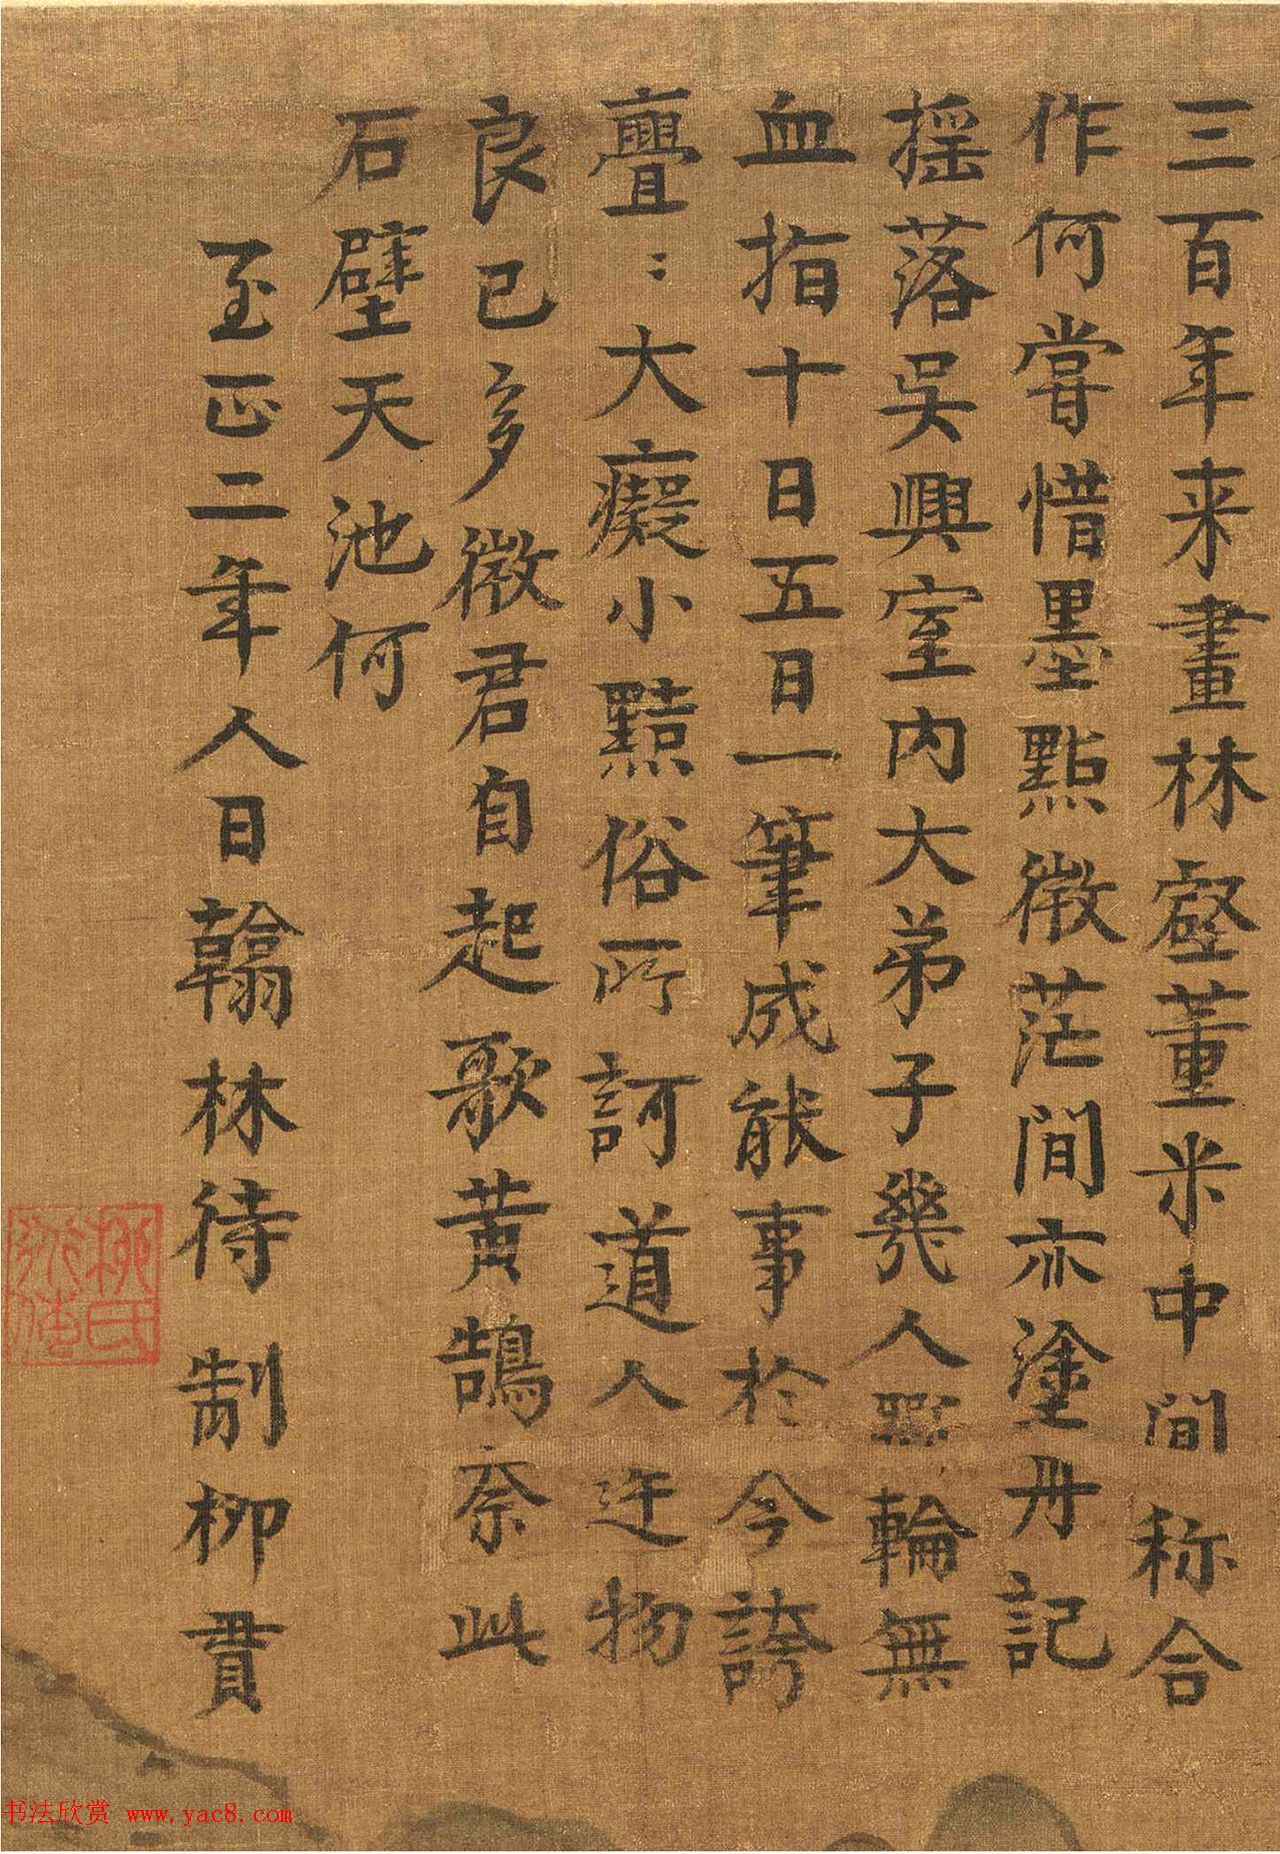 三百年来畫林壑董米中間称合
作何嘗惜墨點微茫間亦塗丹記
揺落吳興室内大弟子幾人斵輪無
血指十日五日一筆成能事於今誇
亹〻大癡小黠俗所訶道人迕物
良已多微君自起歌黄鵠奈此
石壁天池何
至正二年人日翰林待制柳貫
柳氏
书法欣赏 www.yac8.com